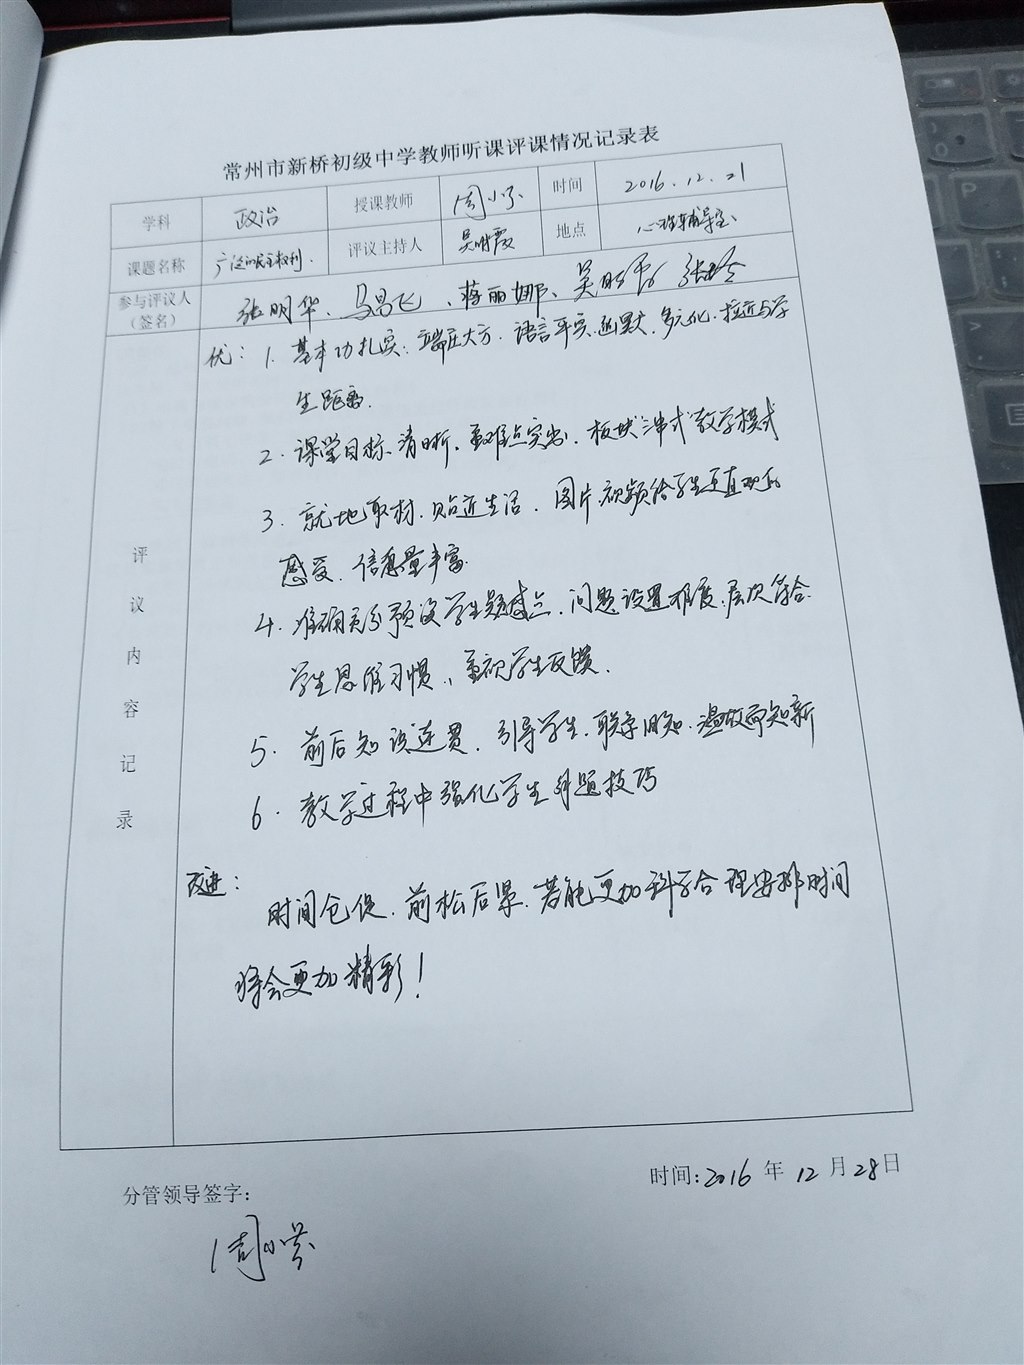 常州市新桥初级中学教师听课评课情况记录表
学科 政治 授课教师 周小芬 时间 2016.12.21
课题名称 广泛的民主权利. 评议主持人 吴明霞 地点 心理辅导室
参与评议人（签名） 张明华、马昌飞、蒋丽娜、吴明霞 张玲
评议内容记录
优：1. 基本功扎实、端庄大方、语言平实、幽默、多元化、拉近与学
生距离.
2. 课堂目标清晰、重难点突出、板块三串式教学模式
3. 就地取材、贴近生活、图片、视频给学生更直观的
感受、信息量丰富.
4. 准确充分预设学生疑惑点、问题设置难度、层次符合
学生思维习惯、重视学生反馈.
5. 前后知识连贯、引导学生、联系旧知、温故而知新
6. 教学过程中强化学生解题技巧
改进：
时间仓促、前松后紧、若能更加科学合理安排时间
将会更加精彩！
时间:2016 年 12 月 28 日
分管领导签字：
周小芬